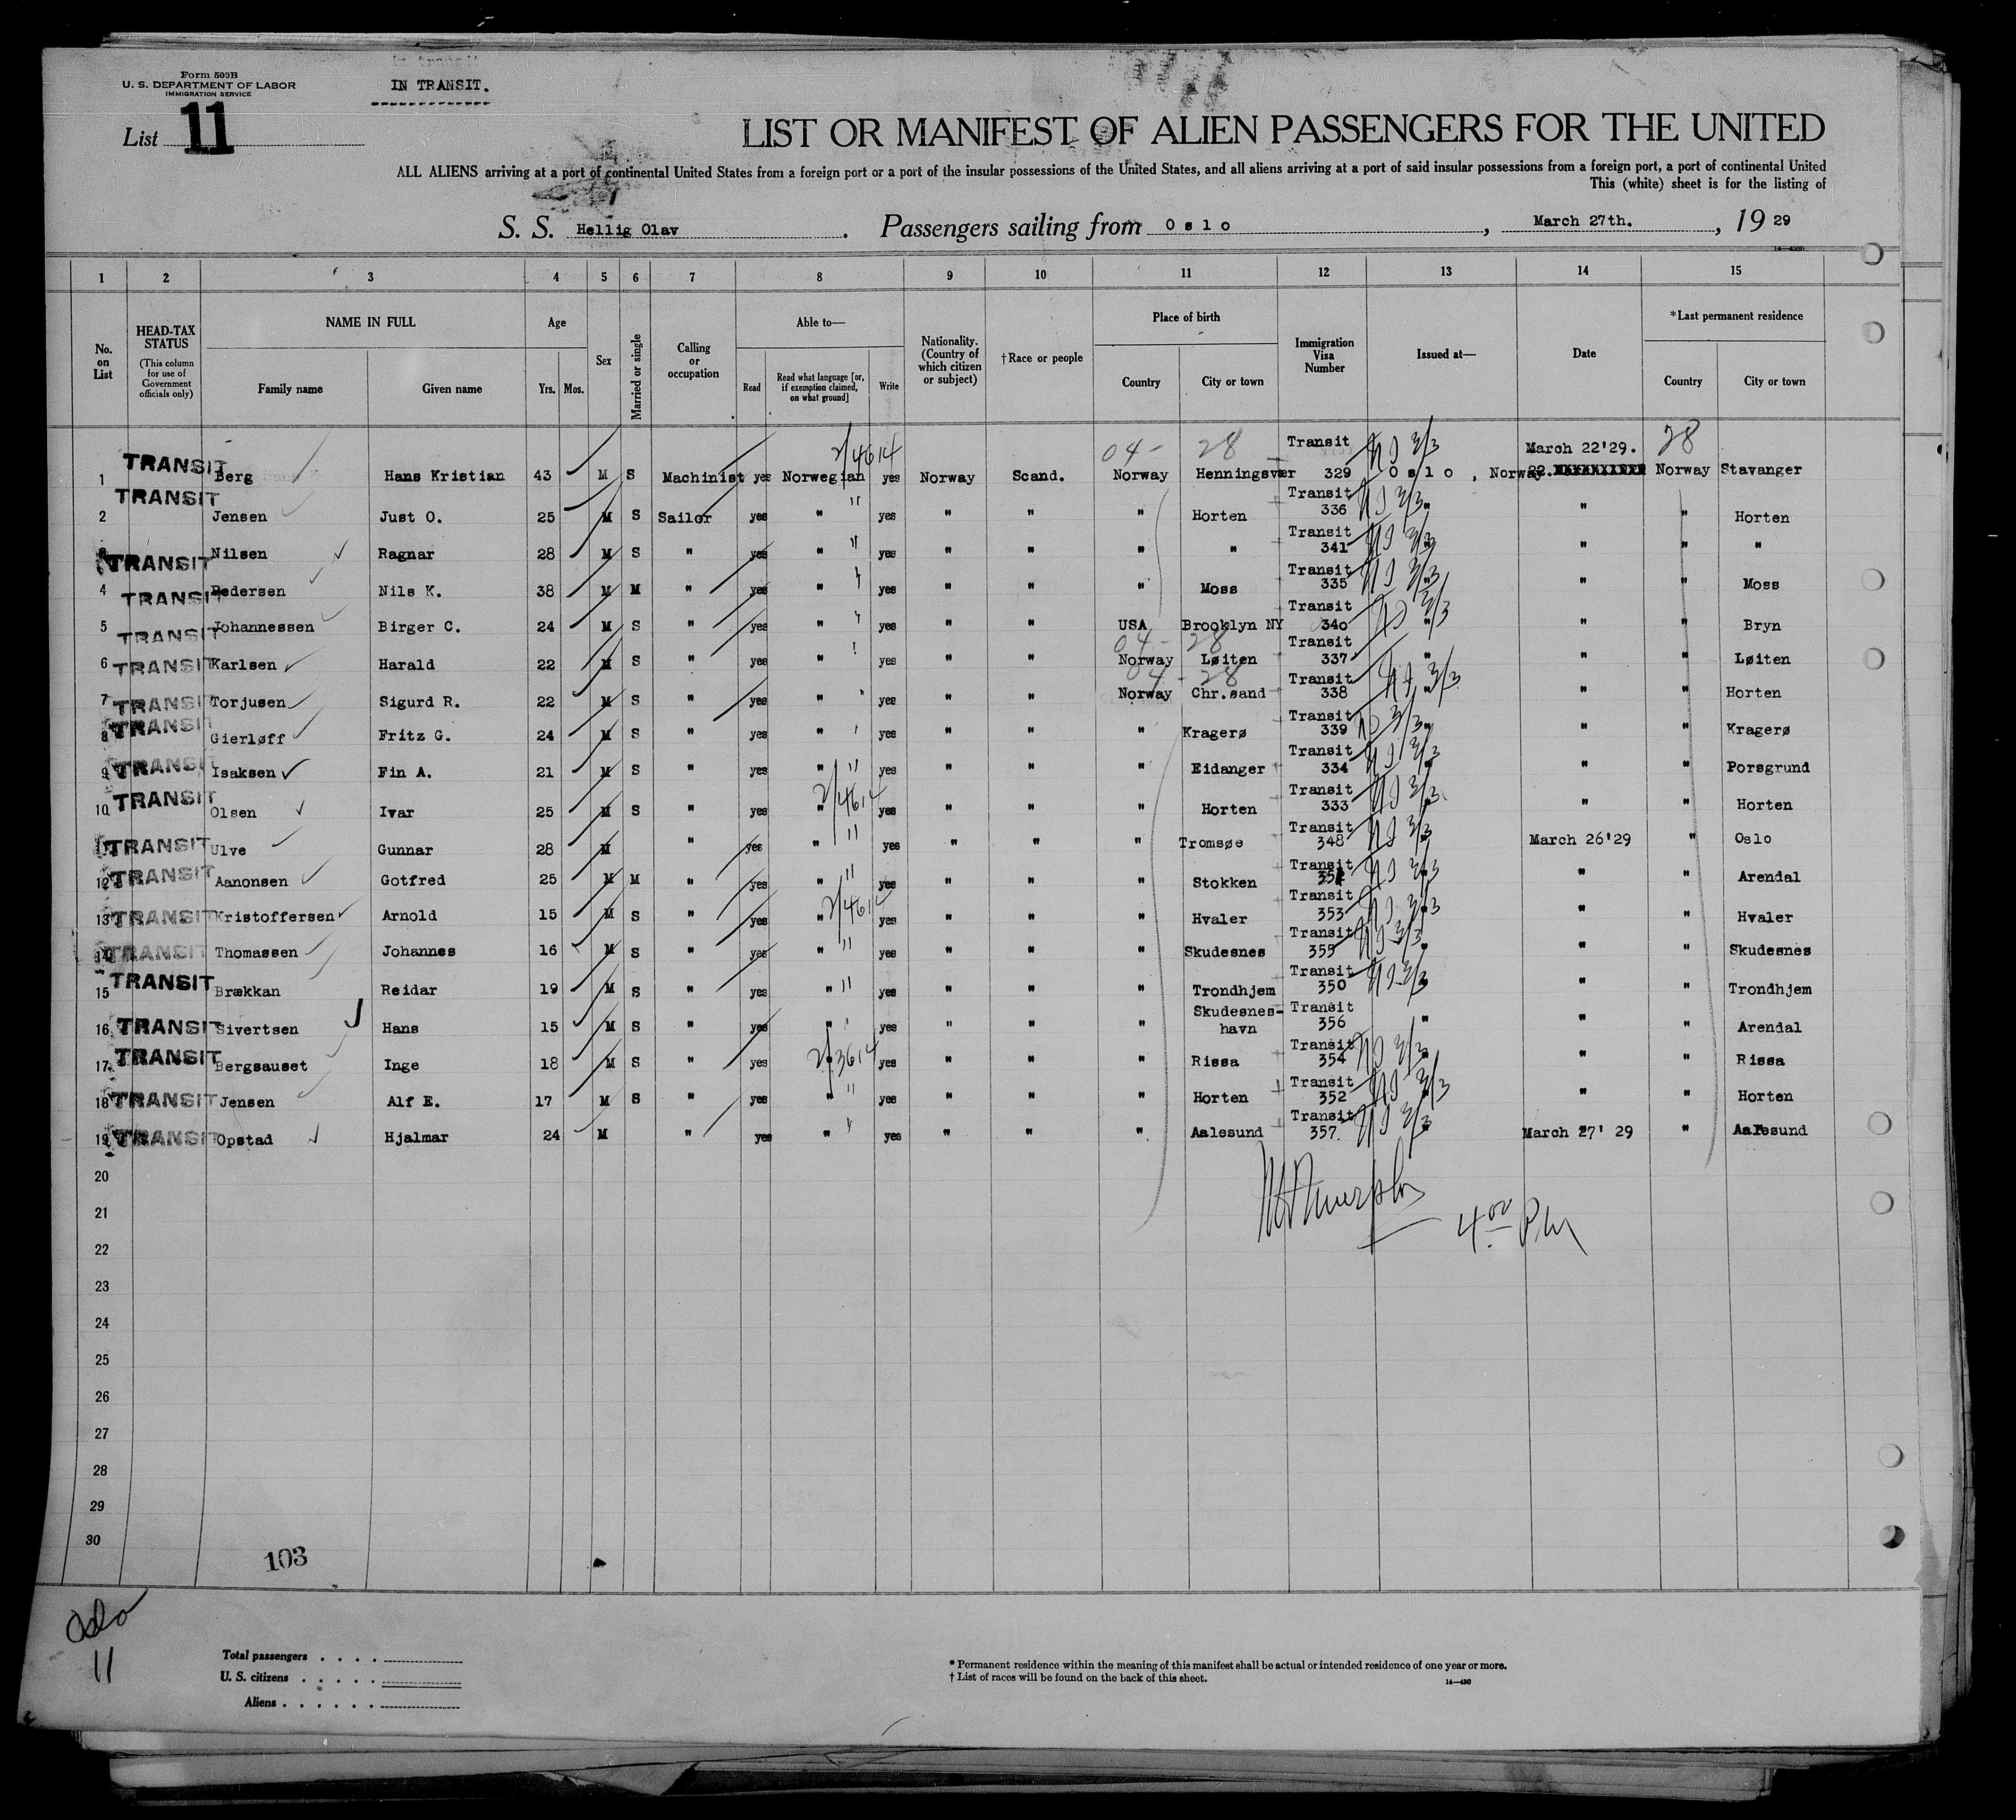 Form 500B
U. S. DEPARTMENT OF LABOR
IMMIGRATION SERVICE
IN TRANSIT.
List 11
LIST OR MANIFEST OF ALIEN PASSENGERS FOR THE UNITED
ALL ALIENS arriving at a port of continental United States from a foreign port or a port of the insular possessions of the United States, and all aliens arriving at a port of said insular possessions from a foreign port, a port of continental United
This (white) sheet is for the listing of
S. S. Hellig Olav. Passengers sailing from Oslo, March 27th., 19 29
1 2 3 4 5 6 7 8 9 10 11 12 13 14 15
No. on List
HEAD-TAX STATUS (This column for use of Government officials only)
NAME IN FULL Family name Given name
Age Yrs. Mos.
Sex
Married or single
Calling or occupation
Able to— Read Read what language [or, if exemption claimed, on what ground] Write
Nationality. (Country of which citizen or subject)
†Race or people
Place of birth Country City or town
Immigration Visa Number
Issued at—
Date
*Last permanent residence Country City or town
04- 28 28
2/4614
1 TRANSIT Berg Hans Kristian 43 M S Machinist yes Norwegian yes Norway Scand. Norway Henningsvær Transit 329 Oslo, Norway. March 22'29. Norway Stavanger
2 TRANSIT Jensen Just O. 25 M S Sailor yes " yes " " " Horten Transit 336 " " " Horten
TRANSIT Nilsen Ragnar 28 M S " yes " yes " " " " Transit 341 " " " "
4 TRANSIT Pedersen Nils K. 38 M M " yes " yes " " " Moss Transit 335 " " " Moss
5 TRANSIT Johannessen Birger C. 24 M S " yes " yes " " USA Brooklyn NY Transit 340 " " " Bryn
04- 28
6 TRANSIT Karlsen Harald 22 M S " yes " yes " " Norway Løiten Transit 337 " " " Løiten
04- 28
7 TRANSIT Torjusen Sigurd R. 22 M S " yes " yes " " Norway Chr.sand Transit 338 " " " Horten
8 TRANSIT Gierløff Fritz G. 24 M S " yes " yes " " " Kragerø Transit 339 " " " Kragerø
9 TRANSIT Isaksen Fin A. 21 M S " yes " yes " " " Eidanger Transit 334 " " " Porsgrund
2/4614
10 TRANSIT Olsen Ivar 25 M S " yes " yes " " " Horten Transit 333 " " " Horten
11 TRANSIT Ulve Gunnar 28 M " yes " yes " " " Tromsøe Transit 348 " March 26'29 " Oslo
12 TRANSIT Aanonsen Gotfred 25 M M " yes " yes " " " Stokken Transit " " " Arendal
2/4614
13 TRANSIT Kristoffersen Arnold 15 M S " yes " yes " " " Hvaler Transit 353 " " " Hvaler
14 TRANSIT Thomassen Johannes 16 M S " yes " yes " " " Skudesnes Transit 355 " " " Skudesnes
15 TRANSIT Brækkan Reidar 19 M S " yes " yes " " " Trondhjem Transit 350 " " " Trondhjem
16 TRANSIT Sivertsen Hans 15 M S " yes " yes " " " Skudesnes-havn Transit 356 " " " Arendal
2/3614
17 TRANSIT Bergsauset Inge 18 M S " yes " yes " " " Rissa Transit 354 " " " Rissa
18 TRANSIT Jensen Alf E. 17 M S " yes " yes " " " Horten Transit 352 " " " Horten
19 TRANSIT Opstad Hjalmar 24 M " yes " yes " " " Aalesund Transit 357. " March 27' 29 " Aalesund
20
21
4 00 PM
22
23
24
25
26
27
28
29
30
103
Oslo
11
Total passengers . . . .
U. S. citizens . . . . .
Aliens . . . . . .
* Permanent residence within the meaning of this manifest shall be actual or intended residence of one year or more.
† List of races will be found on the back of this sheet.
14—430